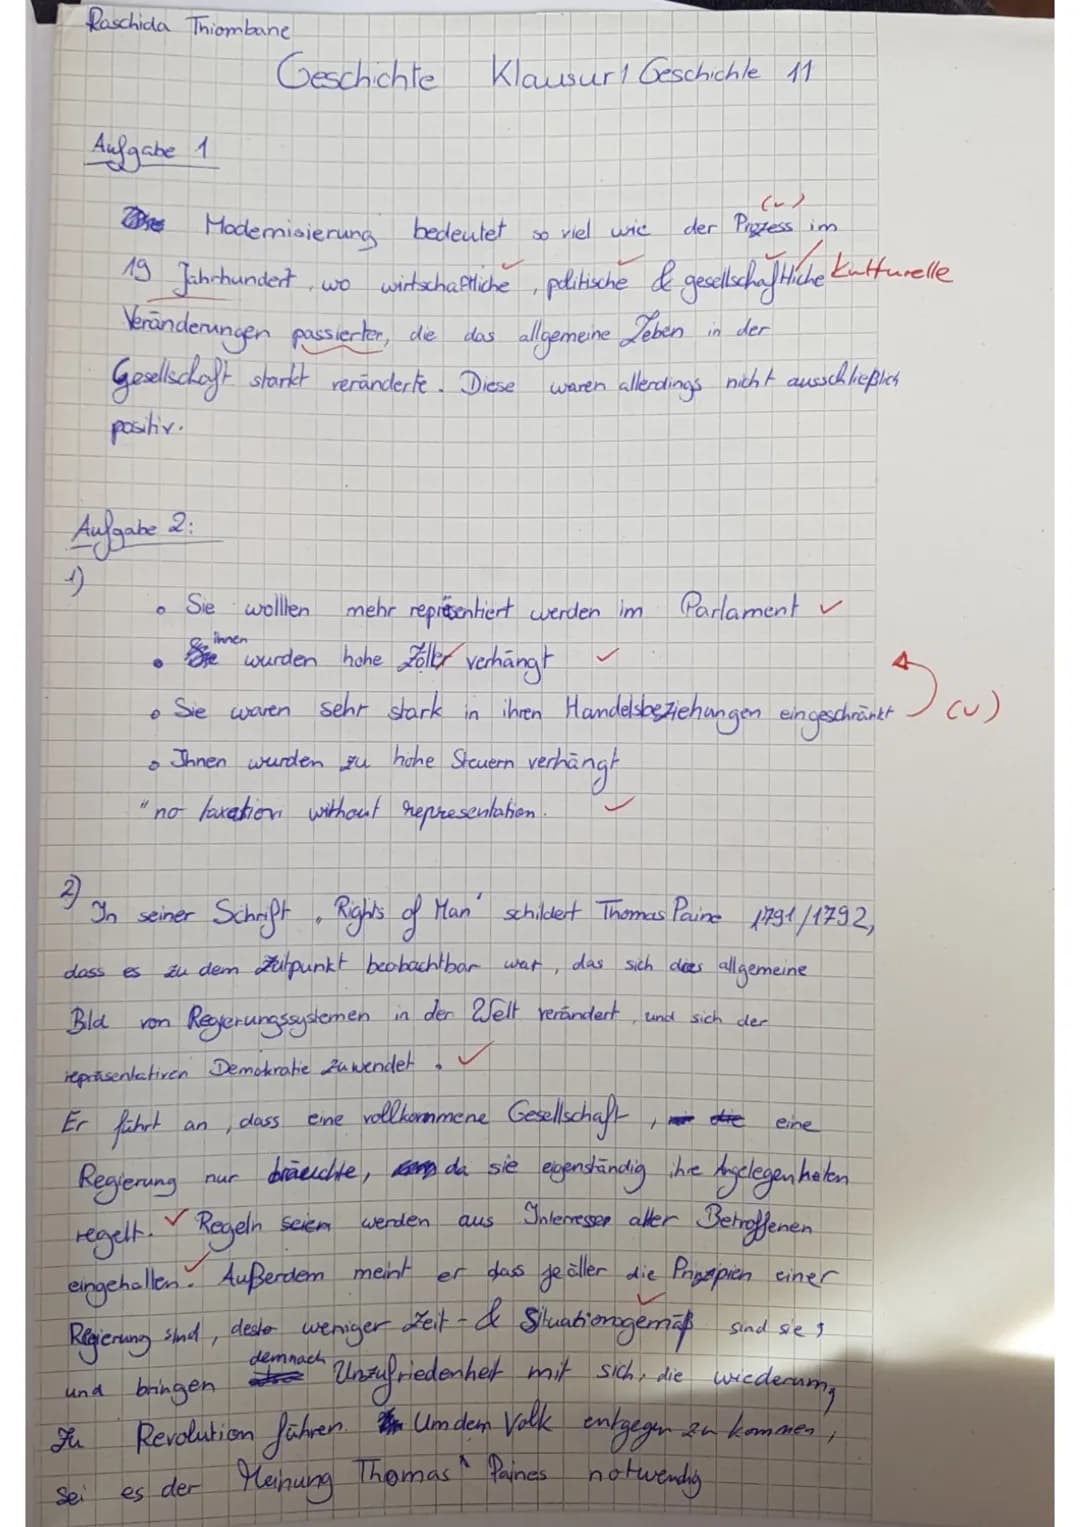 Raschida Thiombane
Geschichte Klausur 1 Geschichte 11
Aufgabe 1
(v)
Modernisierung bedeutet so viel wie der Prozess im
19 Jahrhundert, wo wirtschaftliche, politische & gesellschaftliche kulturelle
Veränderungen passierten, die das allgemeine Leben in der
Gesellschaft starkt veränderte. Diese waren allerdings nicht ausschließlich
positiv.
Aufgabe 2:
1)
• Sie wollten mehr repräsentiert werden im Parlament ✓
• ihnen wurden hohe Zölle verhängt ✓
• Sie waren sehr stark in ihren Handelsbeziehungen eingeschränkt (v)
• Ihnen wurden zu hohe Steuern verhängt
"no taxation without representation. ✓
2)
In seiner Schrift "Rights of Man" schildert Thomas Paine 1791/1792,
dass es zu dem Zeitpunkt beobachtbar war, das sich das allgemeine
Bild von Regierungssystemen in der Welt verändert, und sich der
repräsentativen Demokratie zuwendet. ✓
Er führt an, dass eine vollkommene Gesellschaft, eine
Regierung nur bräuchte, da sie eigenständig ihre Angelegenheiten
regelt. ✓ Regeln werden aus Interessen aller Betroffenen
eingehalten. ✓ Außerdem meint er dass je äller die Prinzipien einer
Regierung sind, desto weniger Zeit- & Situationsgemäß sind sie,
und bringen demnach Unzufriedenheit mit sich, die wiederum,
zu Revolution führen. Um dem Volk entgegen zu kommen,
sei es der Meinung Thomas Paines notwendig